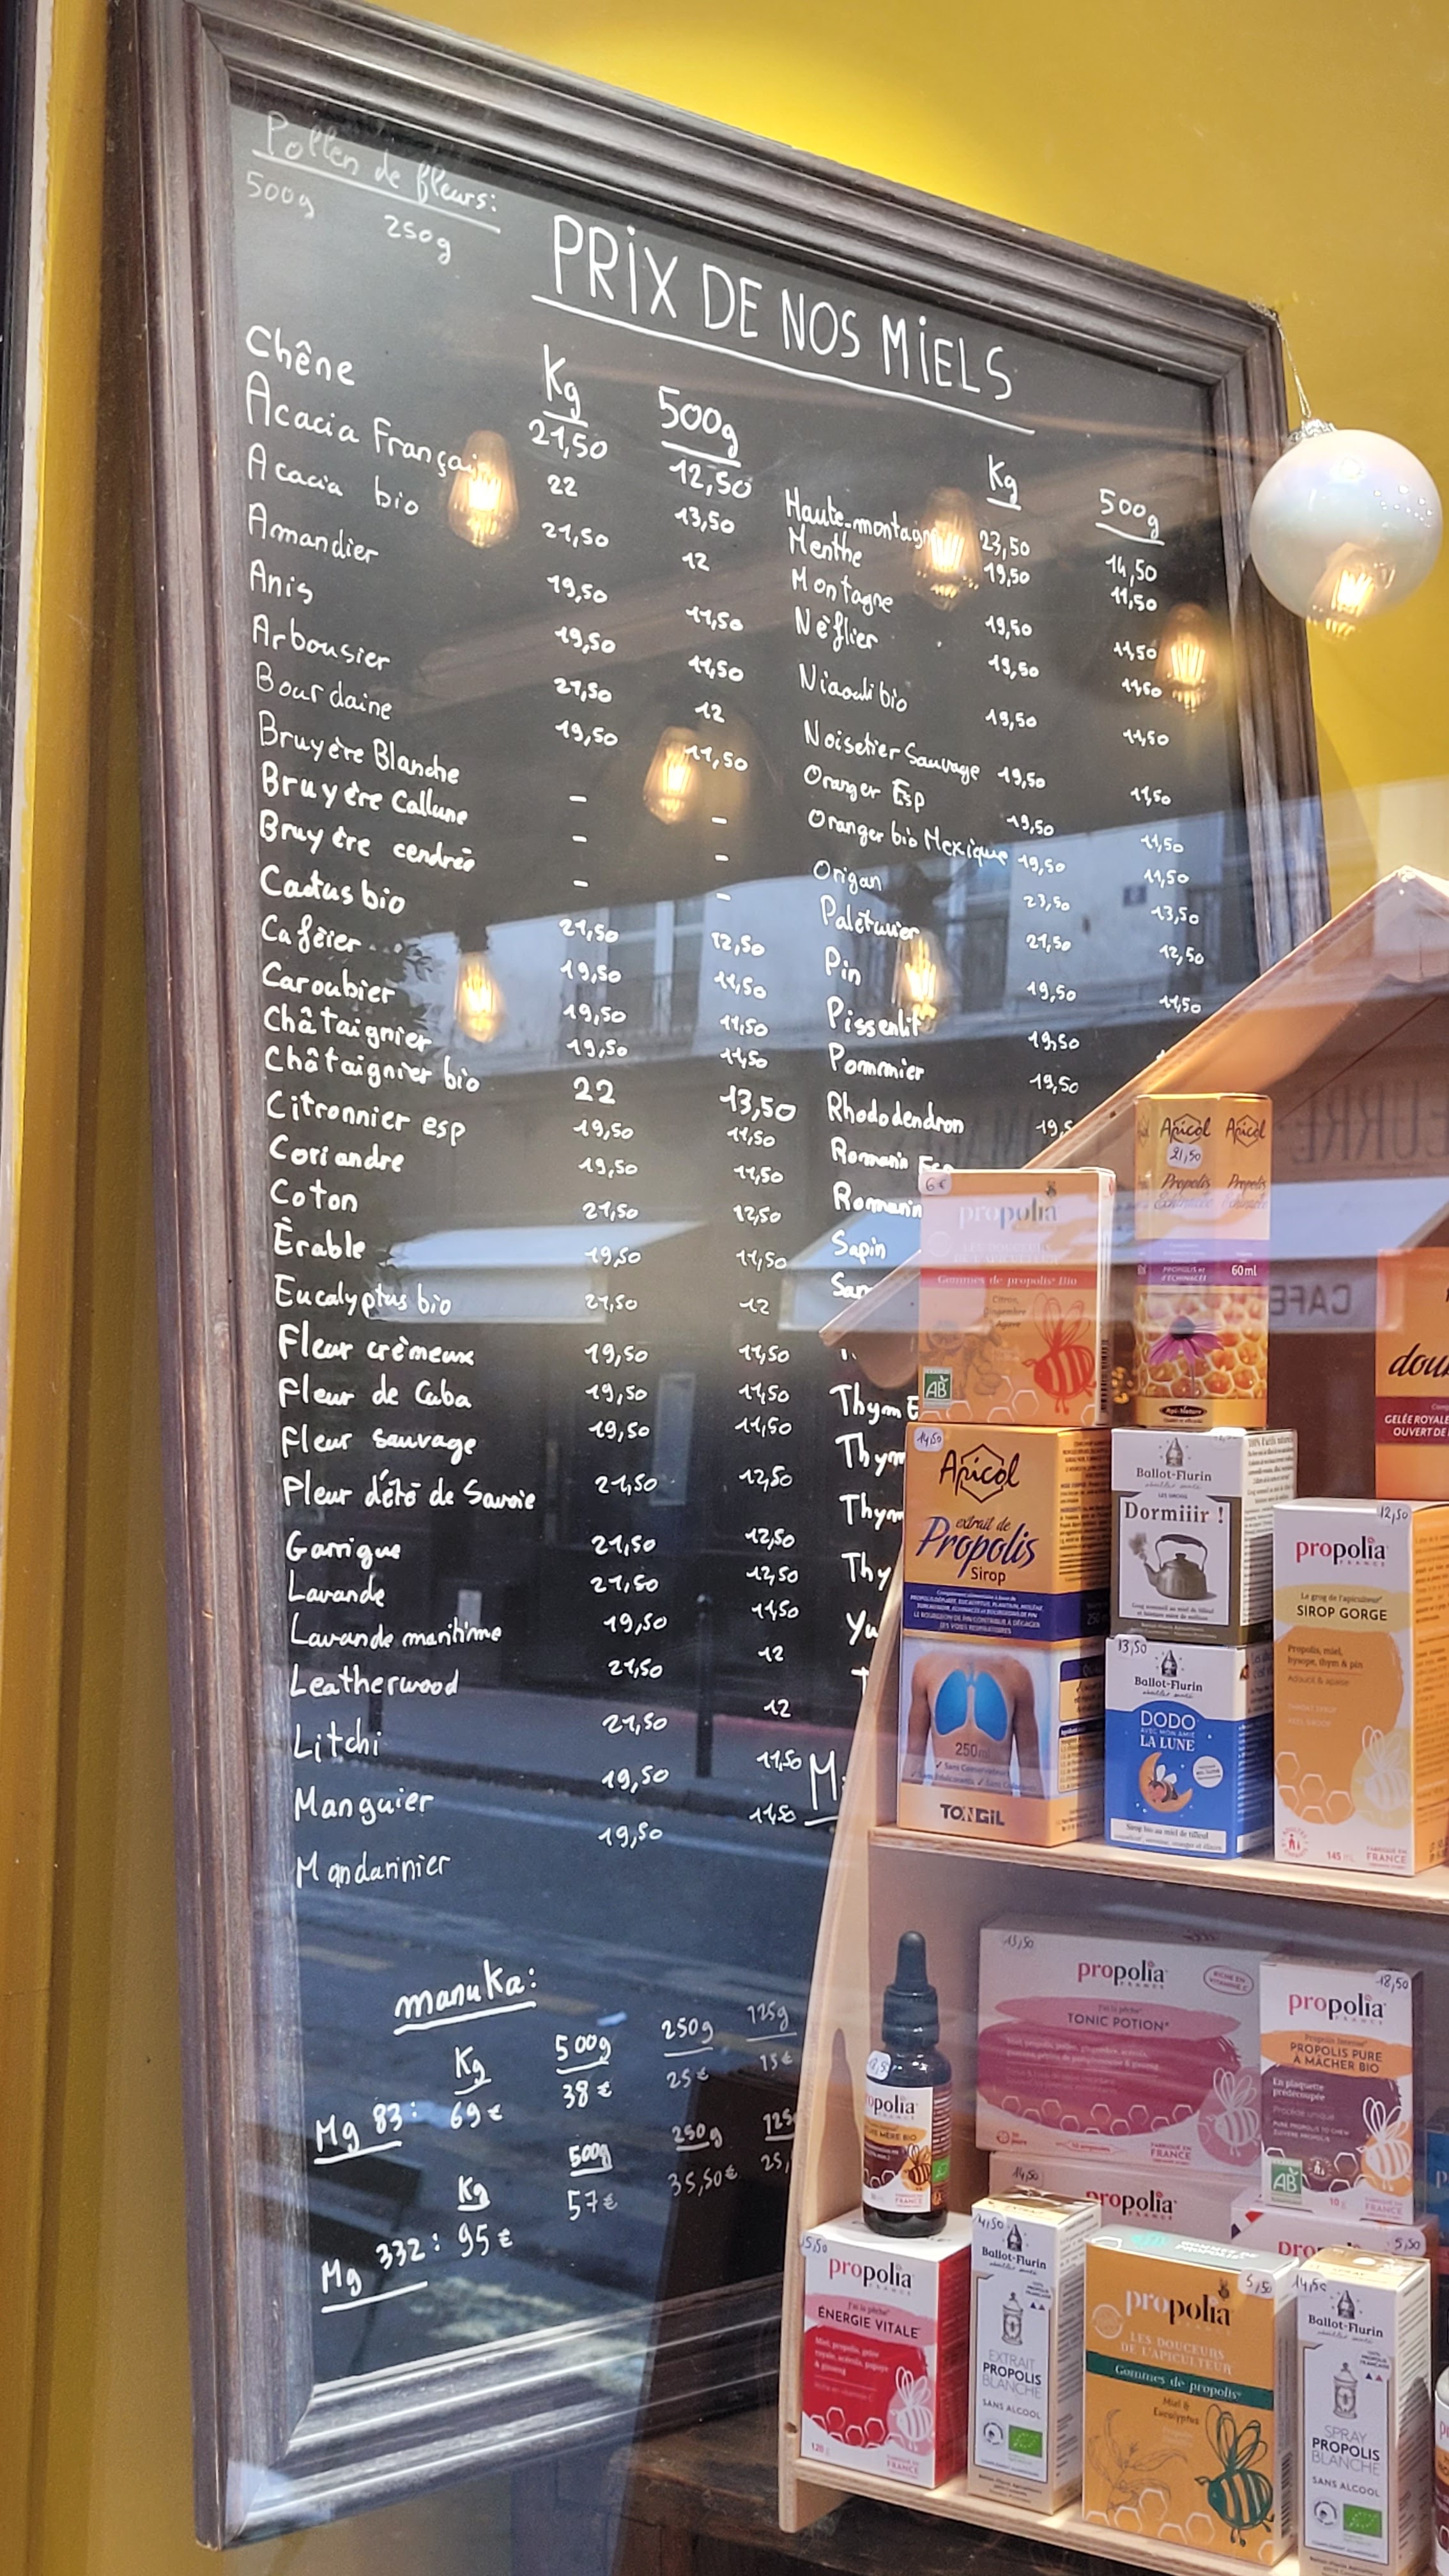 Pollen de fleurs:
500g 250g
PRIX DE NOS MIELS
Kg 500g
Chêne 21,50 12,50
Acacia Françai 22 13,50
Acacia bio 21,50 12
Amandier 19,50 11,50
Anis 19,50 11,50
Arbousier 21,50 12
Bourdaine 19,50 11,50
Bruyère Blanche - -
Bruyère Callune - -
Bruyère cendrée - -
Cactus bio 21,50 12,50
Caféier 19,50 11,50
Caroubier 19,50 11,50
Châtaignier 19,50 11,50
Châtaignier bio 22 13,50
Citronnier esp 19,50 11,50
Coriandre 19,50 11,50
Coton 21,50 12,50
Èrable 19,50 11,50
Eucalyptus bio 21,50 12
Fleur crèmeux 19,50 11,50
Fleur de Cuba 19,50 11,50
Fleur sauvage 19,50 11,50
Fleur d'été de Savoie 21,50 12,50
Garrigue 21,50 12,50
Lavande 21,50 12,50
Lavande maritime 19,50 11,50
Leatherwood 21,50 12
Litchi 21,50 12
Manguier 19,50 11,50
Mandarinier 19,50 11,50
Kg 500g
Haute-montagn 23,50 14,50
Menthe 19,50 11,50
Montagne 19,50 11,50
Néflier 19,50 11,50
Niaouli bio 19,50 11,50
Noisetier Sauvage 19,50 11,50
Oranger Esp 19,50 11,50
Oranger bio Mexique 19,50 11,50
Origan 23,50 13,50
Palétuvier 21,50 12,50
Pin 19,50 11,50
Pissenlit 19,50
Pommier 19,50
Rhododendron 19,5
Romarin Esp
Romarin
Sapin
Sar
Thym E
Thym
Thym
Thy
Yu
M
manuka:
Kg 500g 250g 125g
Mg 83: 69€ 38€ 25€ 15€
Kg 500g 250g 125
Mg 332: 95€ 57€ 35,50€ 25,
6€
propolia
Gommes de propolis Bio
Citron,
Gingembre
Agave
AB
Apicol Apicol
21,50
Propolis Propolis
60ml
14,50
Apicol
extrait de
Propolis
Sirop
250ml
TONGIL
Ballot-Flurin
Dormiiir !
13,50
Ballot-Flurin
DODO
AVEC MON AMIE
LA LUNE
Sirop bio au miel de tilleul
12,50
propolia
FRANCE
Le grog de l'apiculteur
SIROP GORGE
Propolis, miel,
hysope, thym & pin
145 ml
FABRIQUÉ EN
FRANCE
dou
GELÉE ROYALE
OUVERT DE
CAFE
13,50
propolia
FRANCE
RICHE EN
VITAMINE C
J'ai la pêche
TONIC POTION
FABRIQUÉ EN
FRANCE
18,50
propolia
FRANCE
Propolis Intense
PROPOLIS PURE
À MÂCHER BIO
En plaquette
prédécoupée
AB
10g
FABRIQUÉ EN
FRANCE
opolia
MÈRE BIO
14,50
propolia
5,50
5,50
propolia
FRANCE
J'ai la pêche
ÉNERGIE VITALE
Miel, propolis, gelée
royale, acérola, papaye
& ginseng
120g
FABRIQUÉ EN
FRANCE
14,50
Ballot-Flurin
EXTRAIT
PROPOLIS
BLANCHE
SANS ALCOOL
5,50
propolia
LES DOUCEURS
DE L'APICULTEUR
Gommes de propolis
Miel &
Eucalyptus
14,50
Ballot-Flurin
SPRAY
PROPOLIS
BLANCHE
SANS ALCOOL